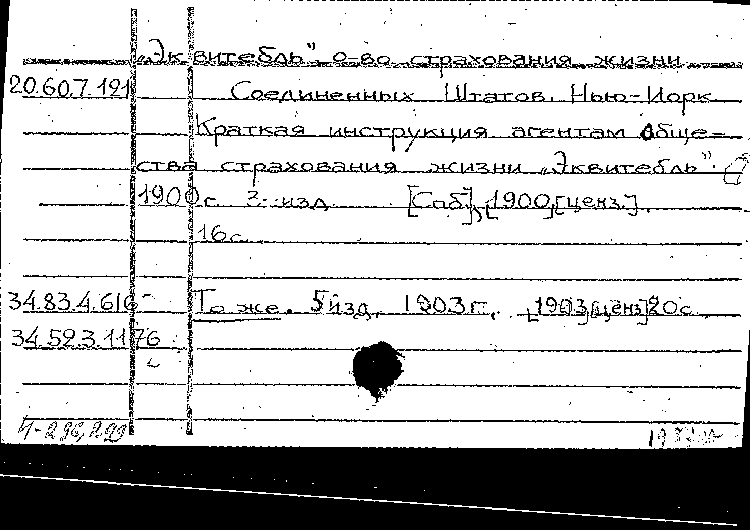 „Эквитебль", о-во страхования жизни
20.60.7.191 Соединенных Штатов. Нью-Йорк
Краткая инструкция агентам Обще-
ства страхования жизни „Эквитебль".
1900г. 3 изд. [Спб], 1900 [ценз].
16с.
34.83.4.616 То же. 5 изд. 1903 г., 1903 [ценз] 20с.
34.52.3.1176
И-296,299